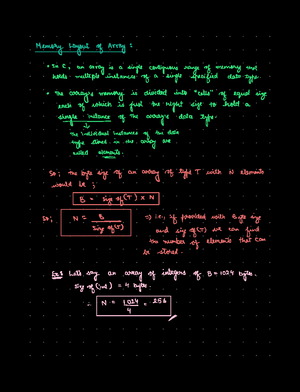 Memory Layout of Arrays :
• In C, an array is a single contiguous range of memory and
holds multiple instances of a single specified data type.
• The array's memory is divided into "cells" of equal size
each of which is just the right size to hold a
single instance of the array's data type.
↓
The individual instances of the data
type stored in the array are
called elements.
So; the byte size of an array of type T with N elements
would be ;
B = size of (T) x N
So; N = B / size of (T) => i.e; if provided with B byte size
and size of (T) we can find
the number of elements that can
be stored.
Ex: Lets say an array of integers of B = 1024 bytes.
size of (int) = 4 bytes.
∴ N = 1024 / 4 = 256